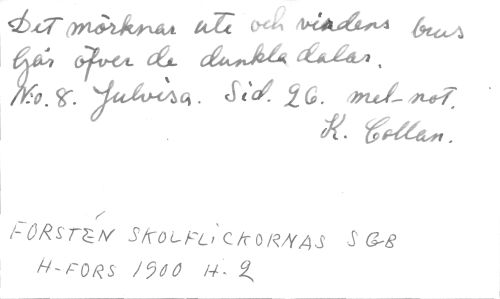 Det mörknar ute och vindens brus
Går öfver de dunkla dalar.
N:o. 8. Julvisa. Sid. 26. mel-not.
K. Collan.
FORSTÉN SKOLFLICKORNAS SGB
H-FORS 1900 H. 2